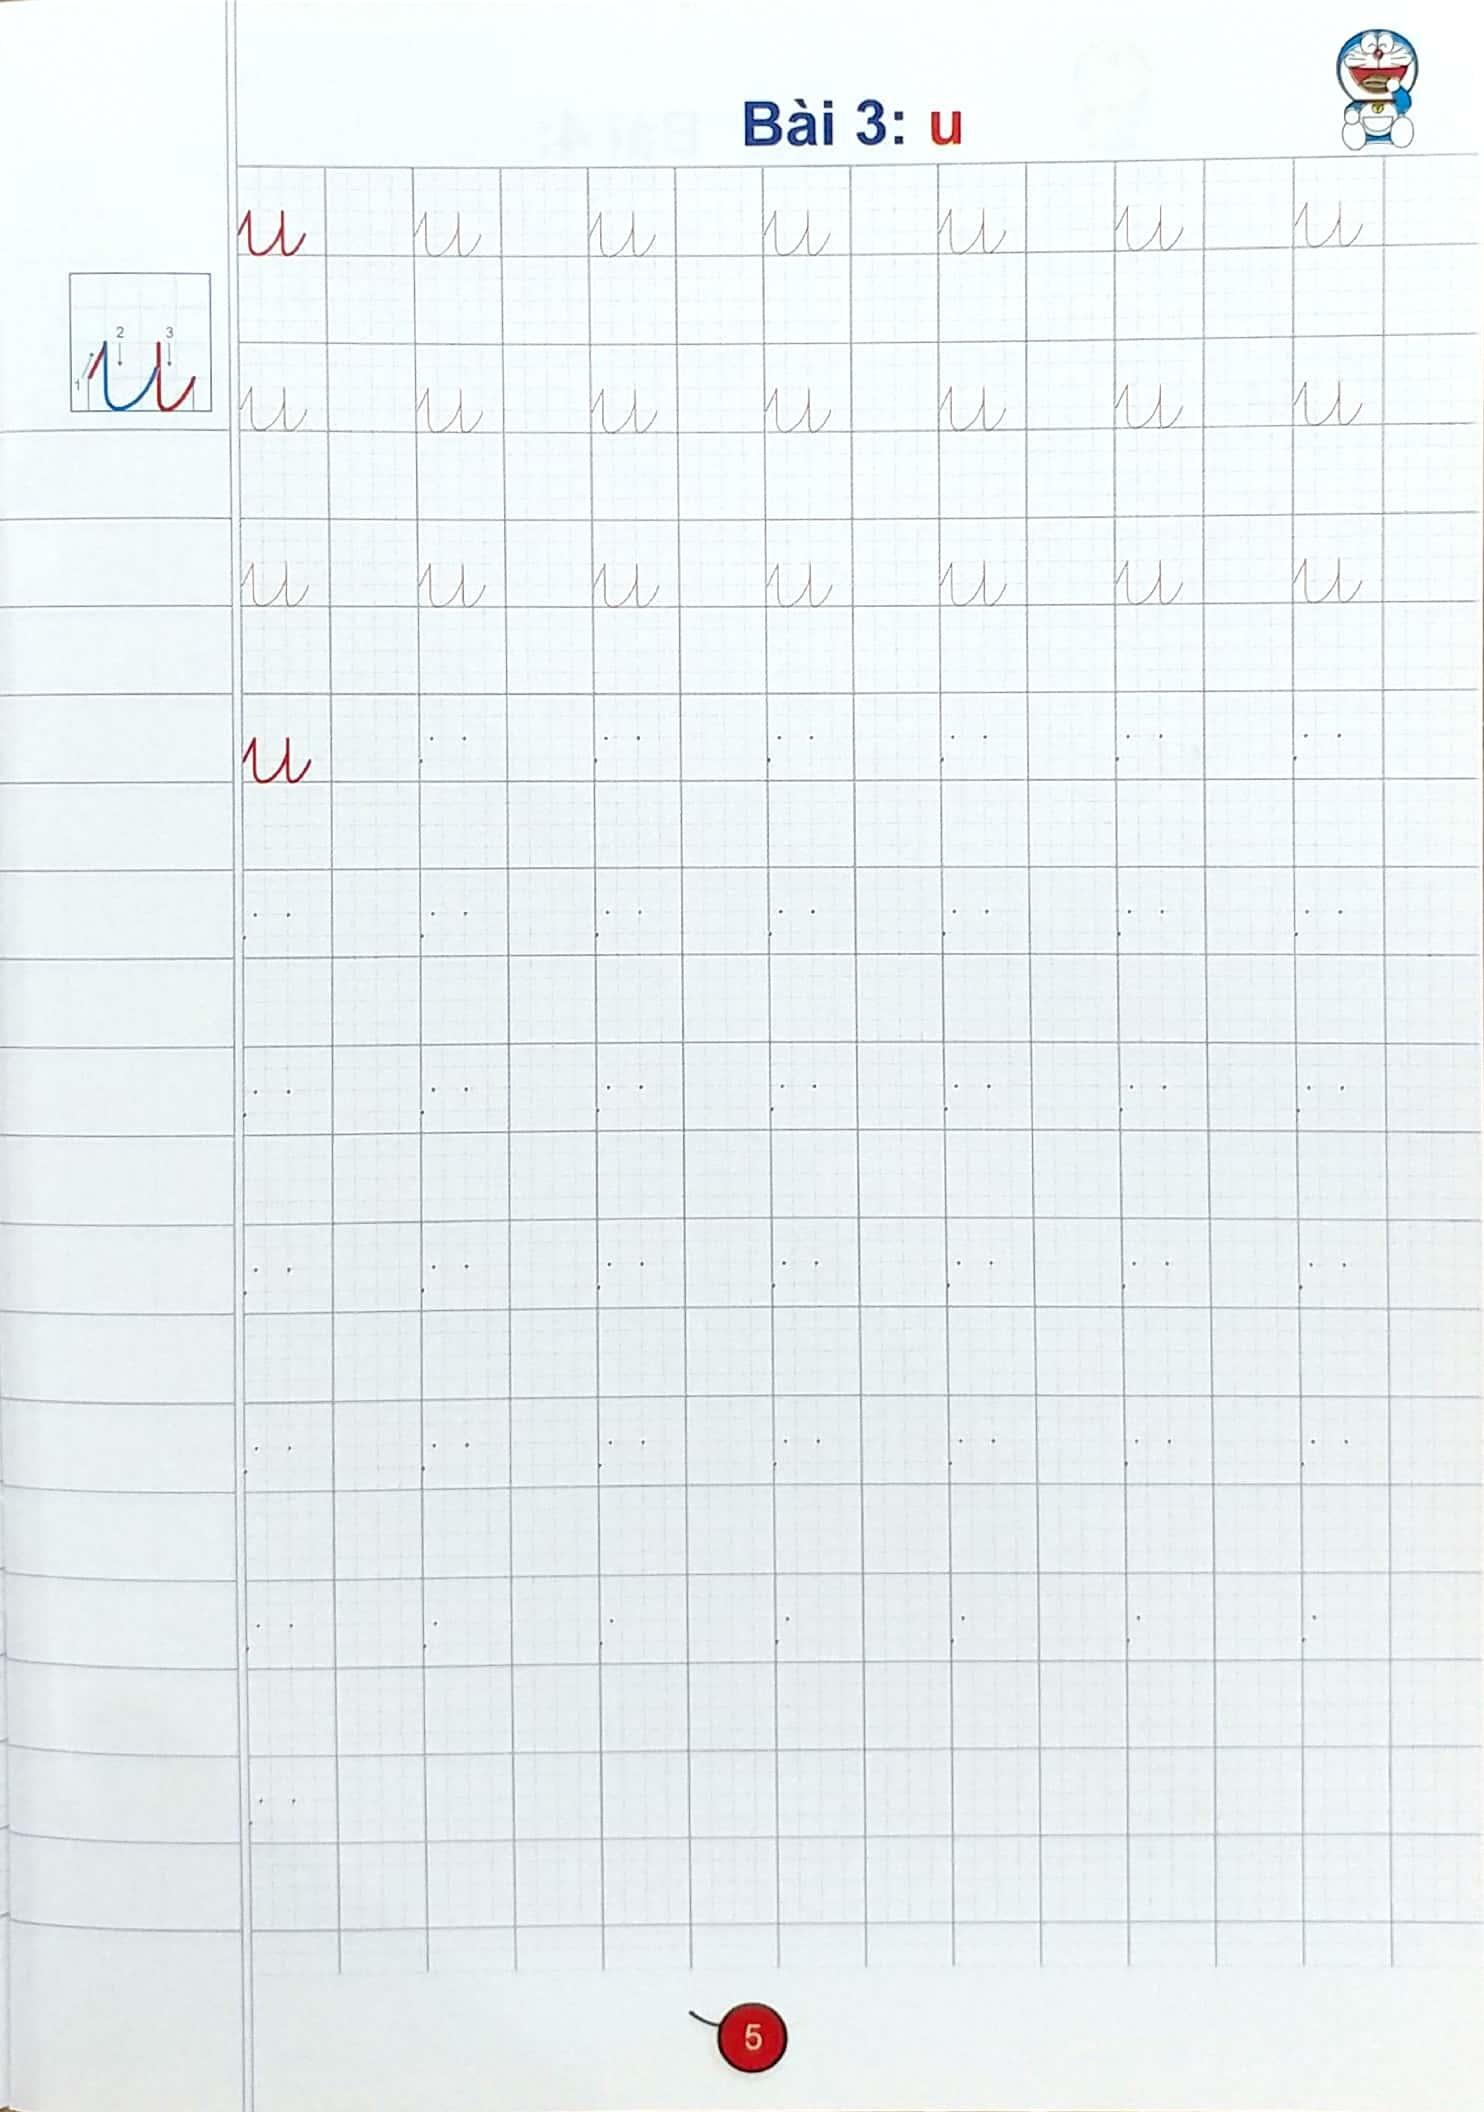 Bài 3: u
u u u u u u u
2 3
1
u u u u u u u
u u u u u u u
u
5